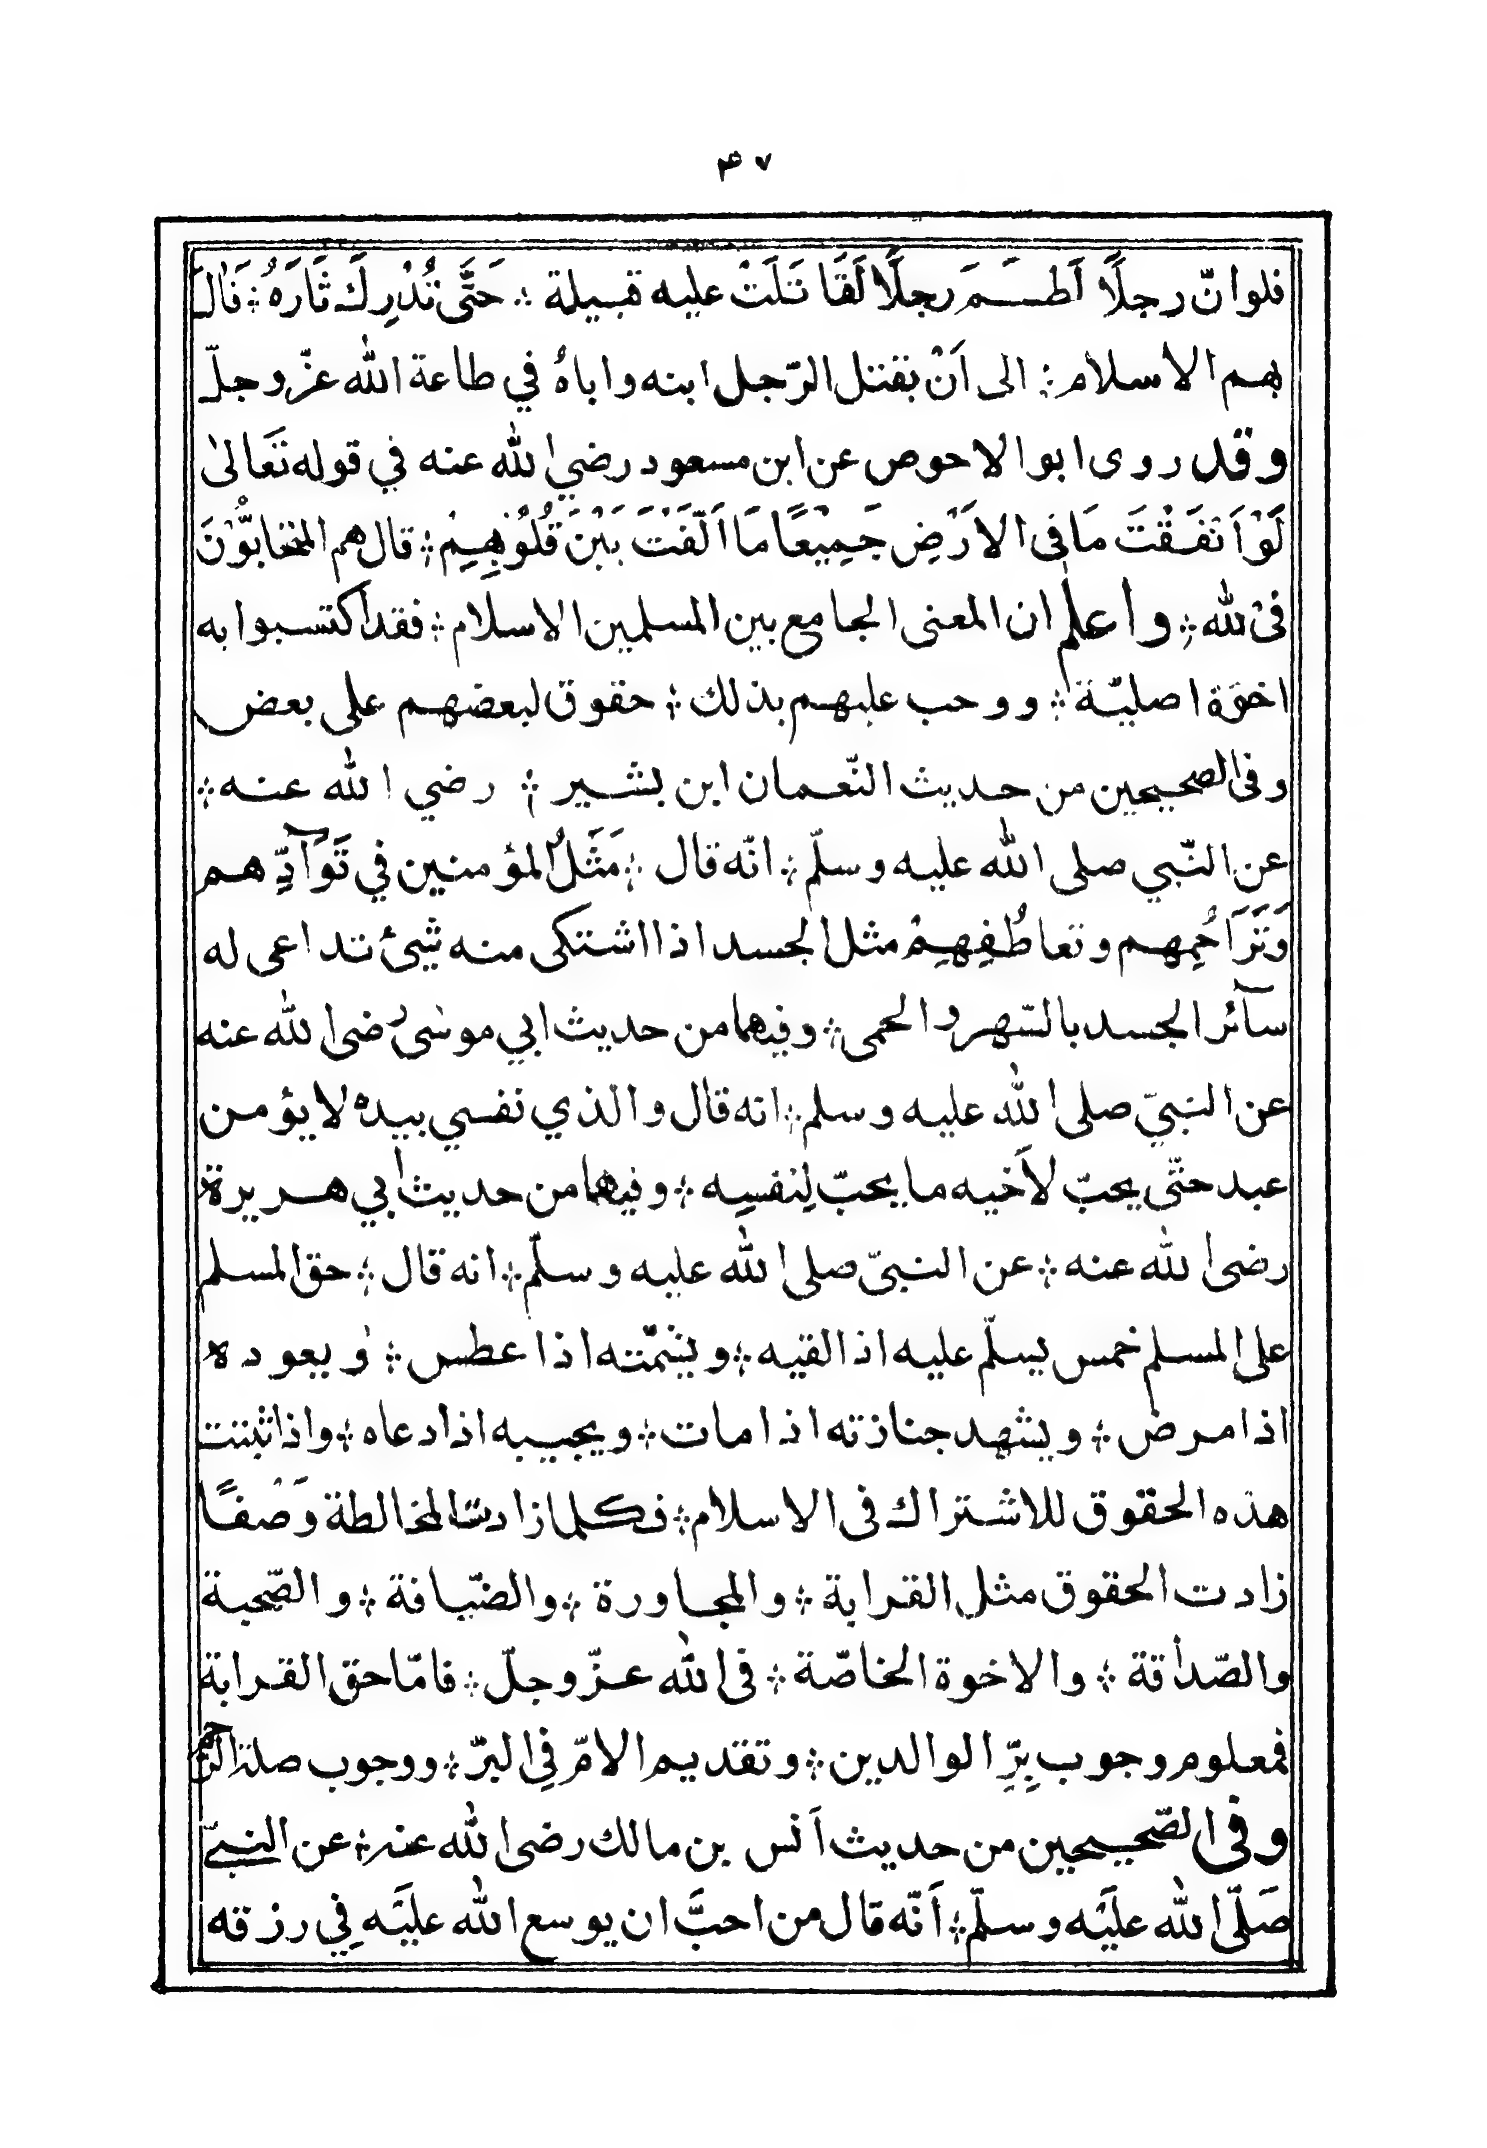 ٤٧
فلوانّ رجلًا لَطَمَ رجلًا لَقَاتَلَتْ عليه قبيلة ؞ حَتَّى تُدْرِكَ ثَارَهُ ؞ فَاٰلَ
بهم الاسلام ؞ الى اَنْ يقتل الرّجل ابنه واباهُ في طاعة الله عزّ وجلّ
وقد روى ابوالاحوص عن ابن مسعود رضي الله عنه في قوله تَعَالىٰ
لَوْ اَنْفَقْتَ مَا فى الارْضِ جَمِيْعًا مَا اَلَّفْتَ بَيْنَ قُلُوْبِهِمْ ؞ قال هم المتحابُّوْنَ
فىْ الله ؞ واعلم ان المعنى الجامع بين المسلمين الاسلام ؞ فقد اكتسبوا به
اخوّة اصليّة ؞ ووجب عليهم بذلك ؞ حقوق لبعضهم على بعض
وفى الصحيحين من حديث النّعمان ابن بشير ؞ رضي الله عنه ؞
عن النّبي صلى الله عليه وسلّم ؞ انّه قال ؞ مَثَلُ المؤمنين في تَوَآدِّهم
وَتَرَاحُمِهم وتعاطُفِهِمْ مثل الجسد اذا اشتكى منه شئ تداعى له
سآئر الجسد بالسّهر والحمى ؞ وفيهما من حديث ابي موسٰى رضى الله عنه
عن النبيّ صلى الله عليه وسلم ؞ انه قال والذي نفسي بيده لا يؤمن
عبد حتّى يحبّ لاَخيه ما يحبّ لِنْفسِه ؞ وفيهما من حديث أبي هريرة
رضى الله عنه ؞ عن النبىّ صلى الله عليه وسلّم ؞ انه قال ؞ حق المسلم
على المسلم خمس يسلّم عليه اذا لقيه ؞ ويشمّته اذا عطس ؞ ويعوده
اذا مرض ؞ ويشهد جنازته اذا مات ؞ ويجيبه اذا دعاه ؞ واذا ثبتت
هذه الحقوق للاشتراك فى الاسلام ؞ فكلما زادت المخالطة وَصْفًا
زادت الحقوق مثل القرابة ؞ والمجاورة ؞ والضّيافة ؞ والصّحبة
والصّداقة ؞ والاخوة الخاصّة ؞ فى الله عزّ وجلّ ؞ فامّا حق القرابة
فمعلوم وجوب بِرِّ الوالدين ؞ وتقديم الامّ فِي البرّ ؞ ووجوب صلة الرّحم
وفى الصّحيحين من حديث اَنس بن مالك رضى الله عنه ؞ عن النبيّ
صَلّى الله علَيْه وسلّم ؞ اَنّه قال من احبَّ ان يوسع الله عليَه فِي رزقه